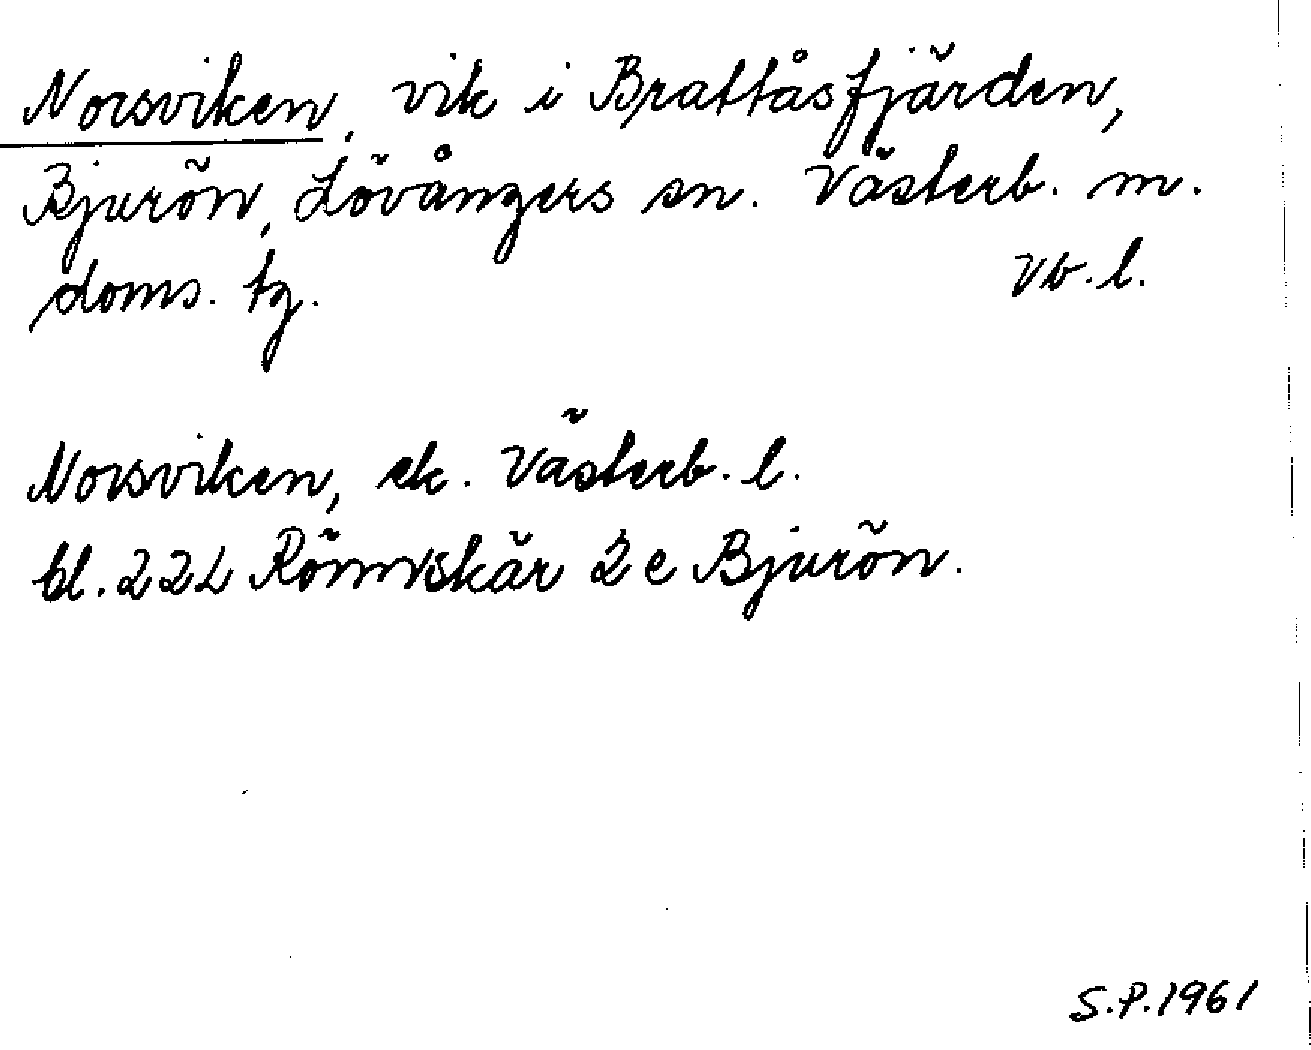 Norsviken, vik i Brattåsfjärden,
Bjurön, Lövångers sn. Västerb. m.
doms. tg. Vb. l.
Norsviken, ek. Västerb. l.
bl. 22L Rönnskär 2e Bjurön.
S.P. 1961